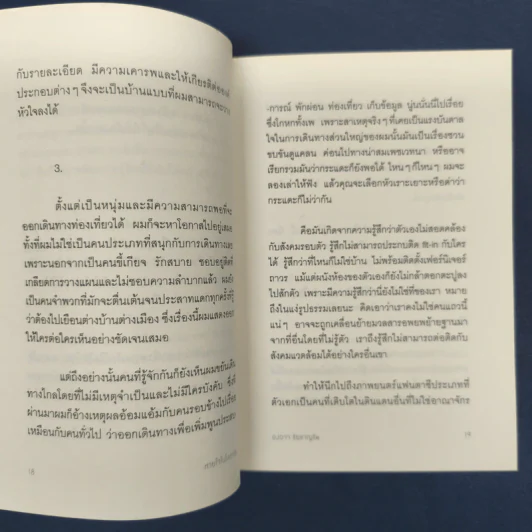 กับรายละเอียด มีความเคารพและให้เกียรติต่อองค์
ประกอบต่างๆ จึงจะเป็นบ้านแบบที่ผมสามารถจะวาง
หัวใจลงได้
3.
ตั้งแต่เป็นหนุ่มและมีความสามารถพอที่จะ
ออกเดินทางท่องเที่ยวได้ ผมก็จะหาโอกาสไปอยู่เสมอ
ทั้งที่ผมไม่ใช่เป็นคนประเภทที่สนุกกับการเดินทางเลย
เพราะนอกจากเป็นคนขี้เกียจ รักสบาย ชอบอยู่ติดที่
เกลียดการวางแผนและไม่ชอบความลำบากแล้ว ผมยัง
เป็นคนจำพวกที่มักจะตื่นเต้นจนประสาทแดกทุกครั้งที่รู้
ว่าต้องไปเยือนต่างบ้านต่างเมือง ซึ่งเรื่องนี้ผมแสดงออก
ให้ใครต่อใครเห็นอย่างชัดเจนเสมอ
แต่ถึงอย่างนั้นคนที่รู้จักกันก็ยังเห็นผมขยันเดิน
ทางไกลโดยที่ไม่มีเหตุจำเป็นและไม่มีใครบังคับ ซึ่งที่
ผ่านมาผมก็อ้างเหตุผลอ้อมแอ้มกับคนรอบข้างไปเรื่อย
เหมือนกับคนทั่วไป ว่าออกเดินทางเพื่อเพิ่มพูนประสบ
18
-การณ์ พักผ่อน ท่องเที่ยว เก็บข้อมูล นู่นนั่นนี่ไปเรื่อย
ซึ่งโกหกทั้งเพ เพราะสาเหตุจริงๆ ที่เคยเป็นแรงบันดาล
ใจในการเดินทางส่วนใหญ่ของผมนั้นมันเป็นเรื่องชวน
ขบขันดูแคลน ค่อนไปทางน่าสมเพชเวทนา หรืออาจ
เรียกรวมมันว่ากระแดะก็ยังพอได้ ไหนๆ ก็ไหนๆ ผมจะ
ลองเล่าให้ฟัง แล้วคุณจะเลือกหัวเราะเยาะหรือด่าว่า
กระแดะก็ไม่ว่ากัน
คือมันเกิดจากความรู้สึกว่าตัวเองไม่สอดคล้อง
กับสังคมรอบตัว รู้สึกไม่สามารถประกบติด fit-in กับใคร
ได้ รู้สึกว่าที่ไหนก็ไม่ใช่บ้าน ไม่พร้อมติดตั้งเฟอร์นิเจอร์
ถาวร แม้แต่ผนังห้องของตัวเองก็ยังไม่กล้าตอกตะปูลง
ไปสักตัว เพราะมีความรู้สึกว่านี่ยังไม่ใช่ที่ของเรา หมาย
ถึงในแง่รูปธรรมเลยนะ คิดเอาว่าเราคงไม่ใช่คนแถวนี้
แน่ๆ อาจจะถูกเคลื่อนย้ายมวลสารอพยพย้ายฐานมา
จากที่อื่นโดยที่ไม่รู้ตัว เราถึงรู้สึกไม่สามารถต่อติดกับ
สังคมแวดล้อมได้อย่างใครอื่นเขา
ทำให้นึกไปถึงภาพยนตร์แฟนตาซีประเภทที่
ตัวเอกเป็นคนที่เติบโตในดินแดนอื่นที่ไม่ใช่อาณาจักร
19